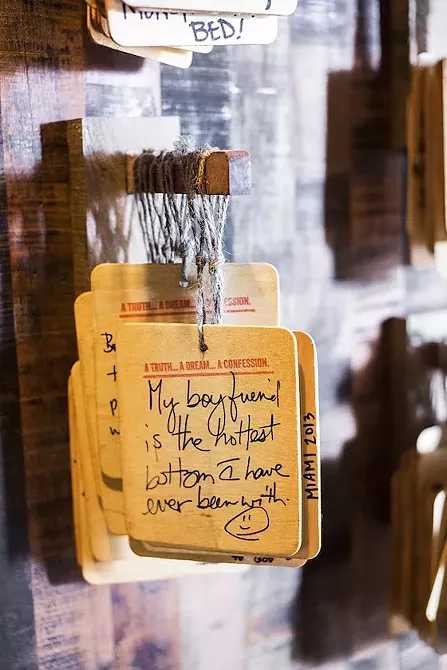 BED!
A TRUTH... A DREAM...
A TRUTH... A DREAM... A CONFESSION.
My boyfriend
is the hottest
bottom I have
ever been with.
MIAMI 2013